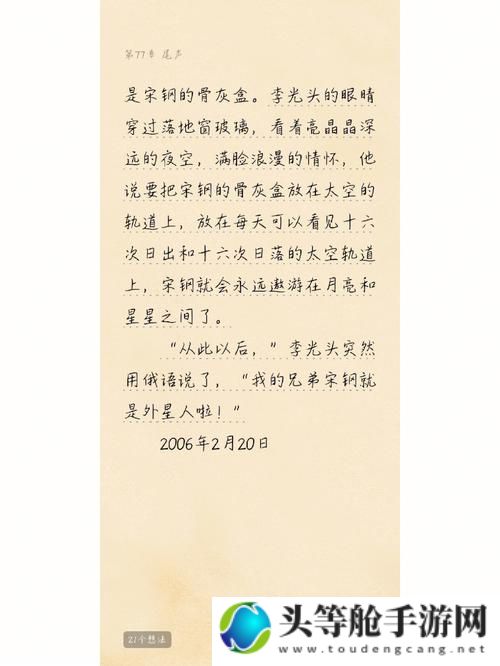 第77章 尾声
是宋钢的骨灰盒。李光头的眼睛
穿过落地窗玻璃，看着亮晶晶深
远的夜空，满脸浪漫的情怀，他
说要把宋钢的骨灰盒放在太空的
轨道上，放在每天可以看见十六
次日出和十六次日落的太空轨道
上，宋钢就会永远遨游在月亮和
星星之间了。
“从此以后，”李光头突然
用俄语说了，“我的兄弟宋钢就
是外星人啦！”
2006年2月20日
21个想法
头等舱手游网
www.toudengcang.net